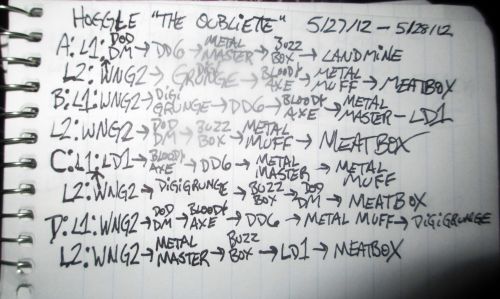 HOGGLE "THE OUBLIETE" 5/27/12 – 5/28/12
A: L1: DOD DM → DD6 → METAL MASTER → BUZZ BOX → LANDMINE
L2: WNG2 → DIGI GRUNGE → BLOODY AXE → METAL MUFF → MEATBOX
B: L1: WNG2 → DIGI GRUNGE → DD6 → BLOODY AXE → METAL MASTER – LD1
L2: WNG2 → DOD DM → BUZZ BOX → METAL MUFF → MEATBOX
C: L1: LD1 → BLOODY AXE → DD6 → METAL MASTER → METAL MUFF
L2: WNG2 → DIGIGRUNGE → BUZZ BOX → DOD DM → MEATBOX
D: L1: WNG2 → DOD DM → BLOODY AXE → DD6 → METAL MUFF → DIGIGRUNGE
L2: WNG2 → METAL MASTER → BUZZ BOX → LD1 → MEATBOX